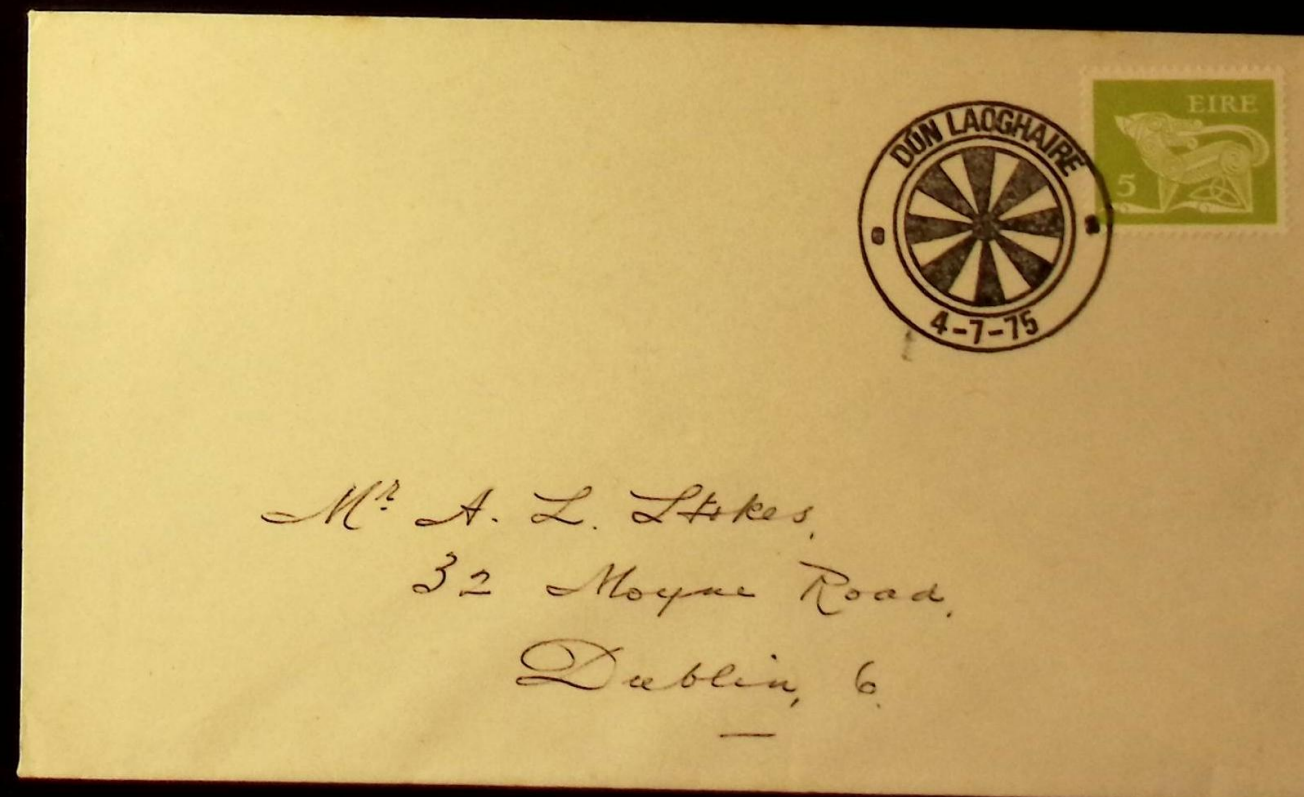 DÚN LAOGHAIRE
4-7-75
EIRE
5
Mr. A. L. Stokes,
32 Moyne Road,
Dublin, 6.